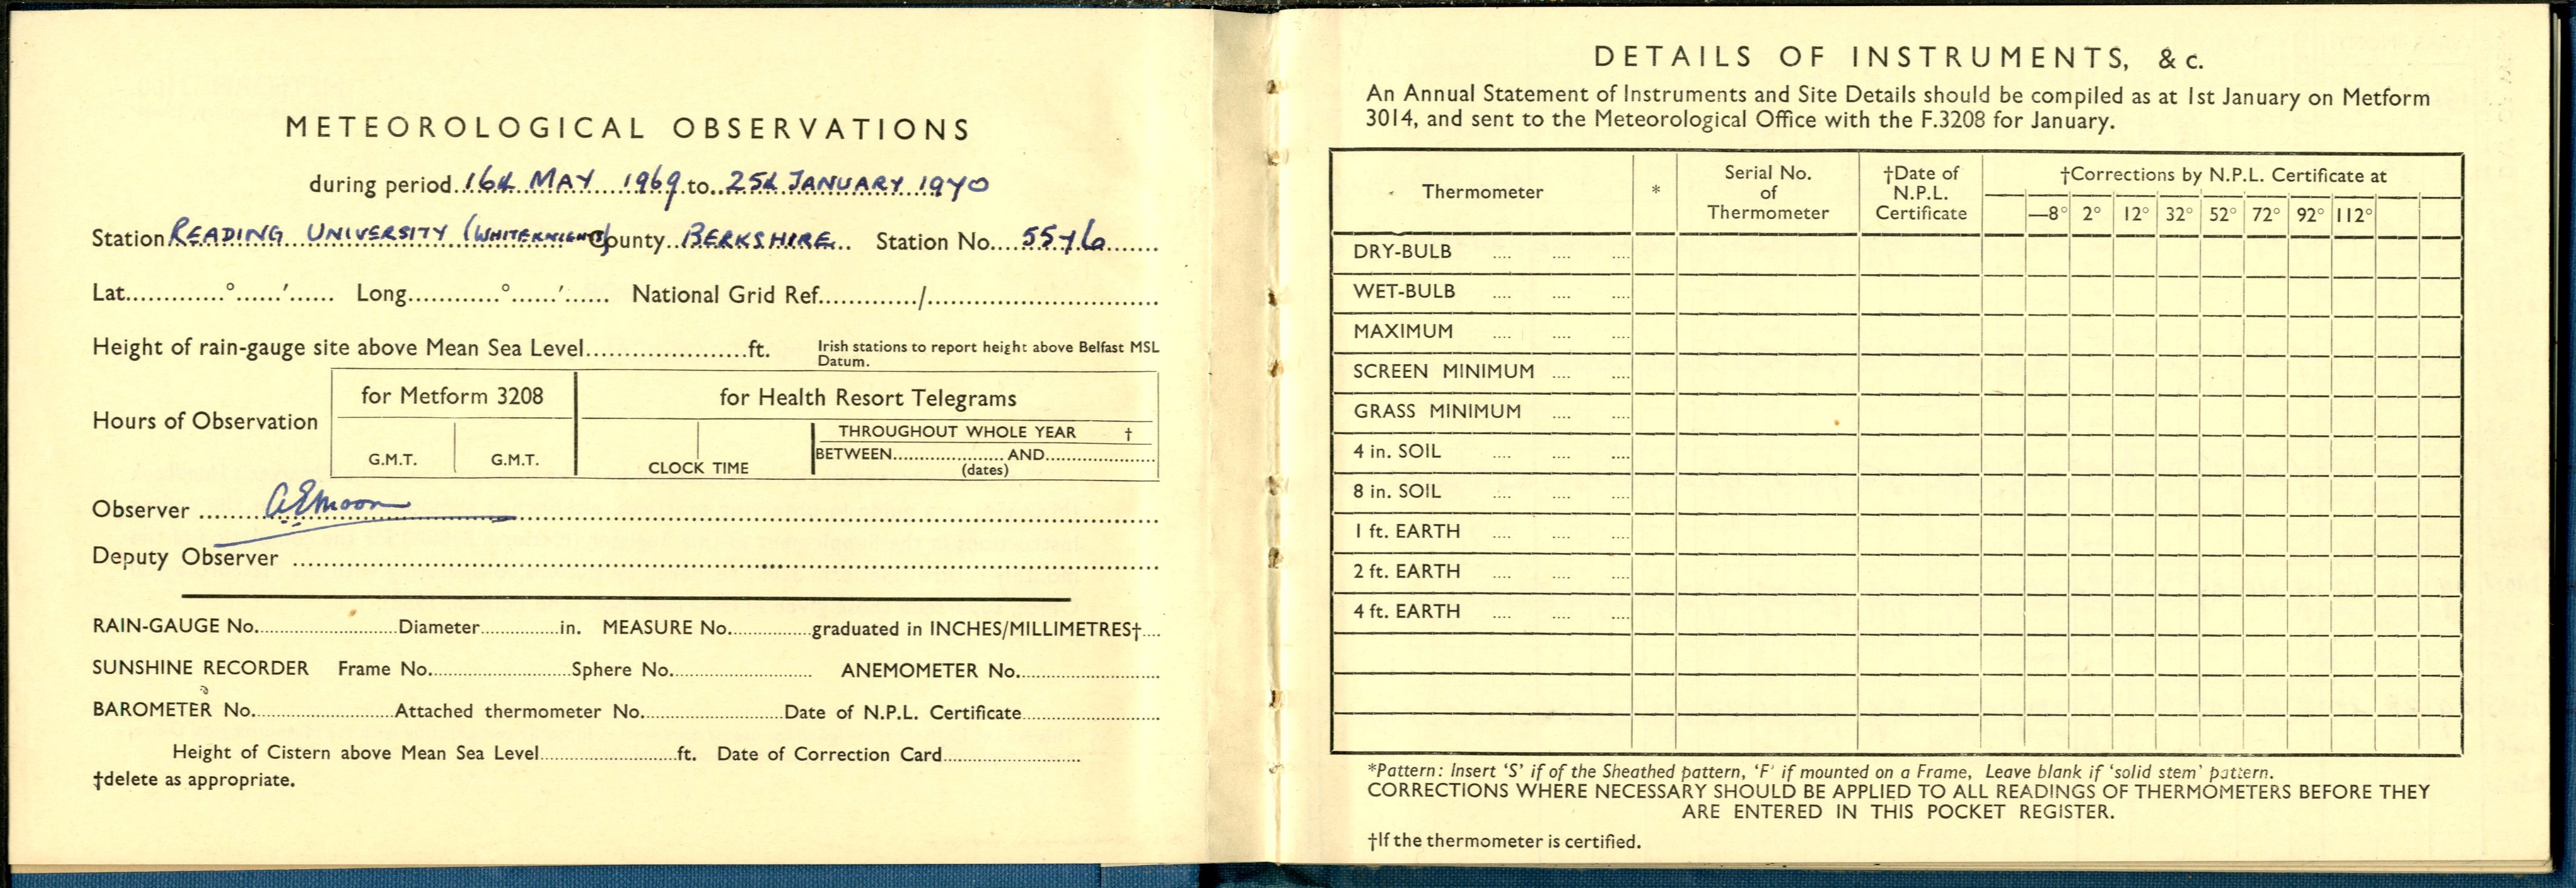 METEOROLOGICAL OBSERVATIONS
during period 16th MAY 1969 to 25th JANUARY 1970
Station READING UNIVERSITY (WHITEKNIGHTS) County BERKSHIRE Station No. 5576
Lat.............°......′...... Long............°......′...... National Grid Ref............/..............................
Height of rain-gauge site above Mean Sea Level....................ft. Irish stations to report height above Belfast MSL
Datum.
Hours of Observation
for Metform 3208
G.M.T. G.M.T.
for Health Resort Telegrams
CLOCK TIME
THROUGHOUT WHOLE YEAR †
BETWEEN.................... AND....................
(dates)
Observer A E Moon
Deputy Observer
RAIN-GAUGE No. Diameter in. MEASURE No. graduated in INCHES/MILLIMETRES†
SUNSHINE RECORDER Frame No. Sphere No. ANEMOMETER No.
BAROMETER No. Attached thermometer No. Date of N.P.L. Certificate
Height of Cistern above Mean Sea Level ft. Date of Correction Card
†delete as appropriate.
DETAILS OF INSTRUMENTS, & c.
An Annual Statement of Instruments and Site Details should be compiled as at 1st January on Metform
3014, and sent to the Meteorological Office with the F.3208 for January.
Thermometer * Serial No. of Thermometer †Date of N.P.L. Certificate †Corrections by N.P.L. Certificate at
—8° 2° 12° 32° 52° 72° 92° 112°
DRY-BULB
WET-BULB
MAXIMUM
SCREEN MINIMUM
GRASS MINIMUM
4 in. SOIL
8 in. SOIL
1 ft. EARTH
2 ft. EARTH
4 ft. EARTH
*Pattern: Insert 'S' if of the Sheathed pattern, 'F' if mounted on a Frame, Leave blank if 'solid stem' pattern.
CORRECTIONS WHERE NECESSARY SHOULD BE APPLIED TO ALL READINGS OF THERMOMETERS BEFORE THEY
ARE ENTERED IN THIS POCKET REGISTER.
†If the thermometer is certified.